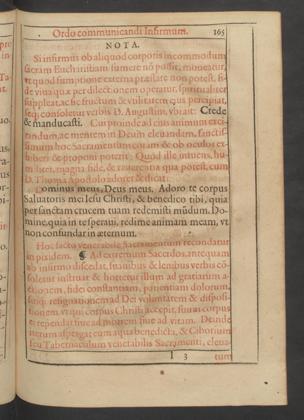 Ordo communicandi Infirmum. 165
NOTA.
Si infirmus ob aliquod corporis incommodum
sacram Eucharistiam sumere nõ possit, moneatur,
vt quod sumptione externa præstare non potest, fi-
de viua quæ per dilectionem operatur, spiritualiter
suppleat, ac sic fructum & vtilitatem
consoletur verbis D. Augustini, Crede
& manducasti. Cui proinde ad cius animum
ac mentem in Deum eleuandam, sanctis-
simum hoc Sacramentum coram & ob oculos
& proponi poterit. Quod ille intuens, hu-
magna fide, & reuerentia qua poterit, cum
D. Thoma Apostolo adoret & dicat.
Dominus meus, Deus meus. Adoro te corpus
Saluatoris mei Iesu Christi, & benedico tibi, quia
per sanctam crucem tuam redemisti mũdum. Do-
mine, quia in te speraui, redime animam meam, vt
non confundar in æternum.
Hoc facto venerabile Sacramentum recondatur
in pixidem. Ad extremum Sacerdos, antequam
ab infirmo discedat, suauibus & lenibus verbis cõ-
soletur instruat & hortetur illum ad gratiarum a-
ctionem, fidei constantiam, patientiam dolorum,
resignationem ad Dei voluntatem & disposi-
tionem, vt qui corpus Christi accepit,
siue ad mortem siue ad vitam. Deinde
aspergat eum aqua benedicta, & Ciborium
seu Tabernaculum venerabilis Sacramenti, eleua-
I 3 tum